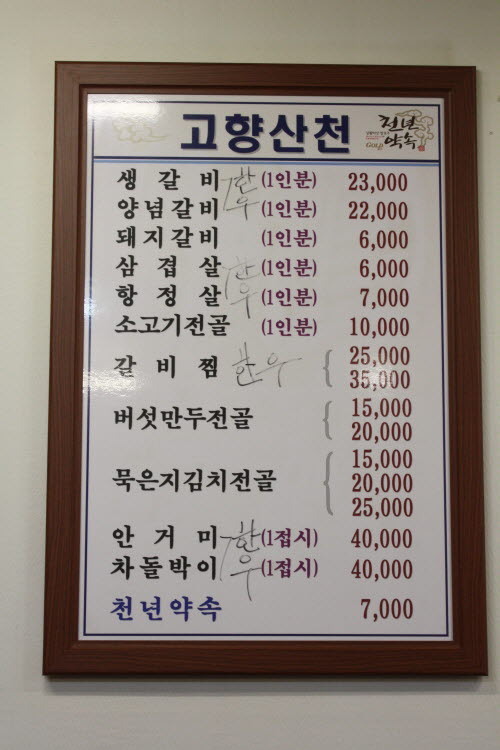 고향산천
천년
약속
GOLD
생갈비 한우 (1인분) 23,000
양념갈비 (1인분) 22,000
돼지갈비 (1인분) 6,000
삼겹살 한우 (1인분) 6,000
항정살 (1인분) 7,000
소고기전골 (1인분) 10,000
갈비찜 한우 { 25,000
35,000
버섯만두전골 { 15,000
20,000
묵은지김치전골 { 15,000
20,000
25,000
안거미 한우 (1접시) 40,000
차돌박이 (1접시) 40,000
천년약속 7,000